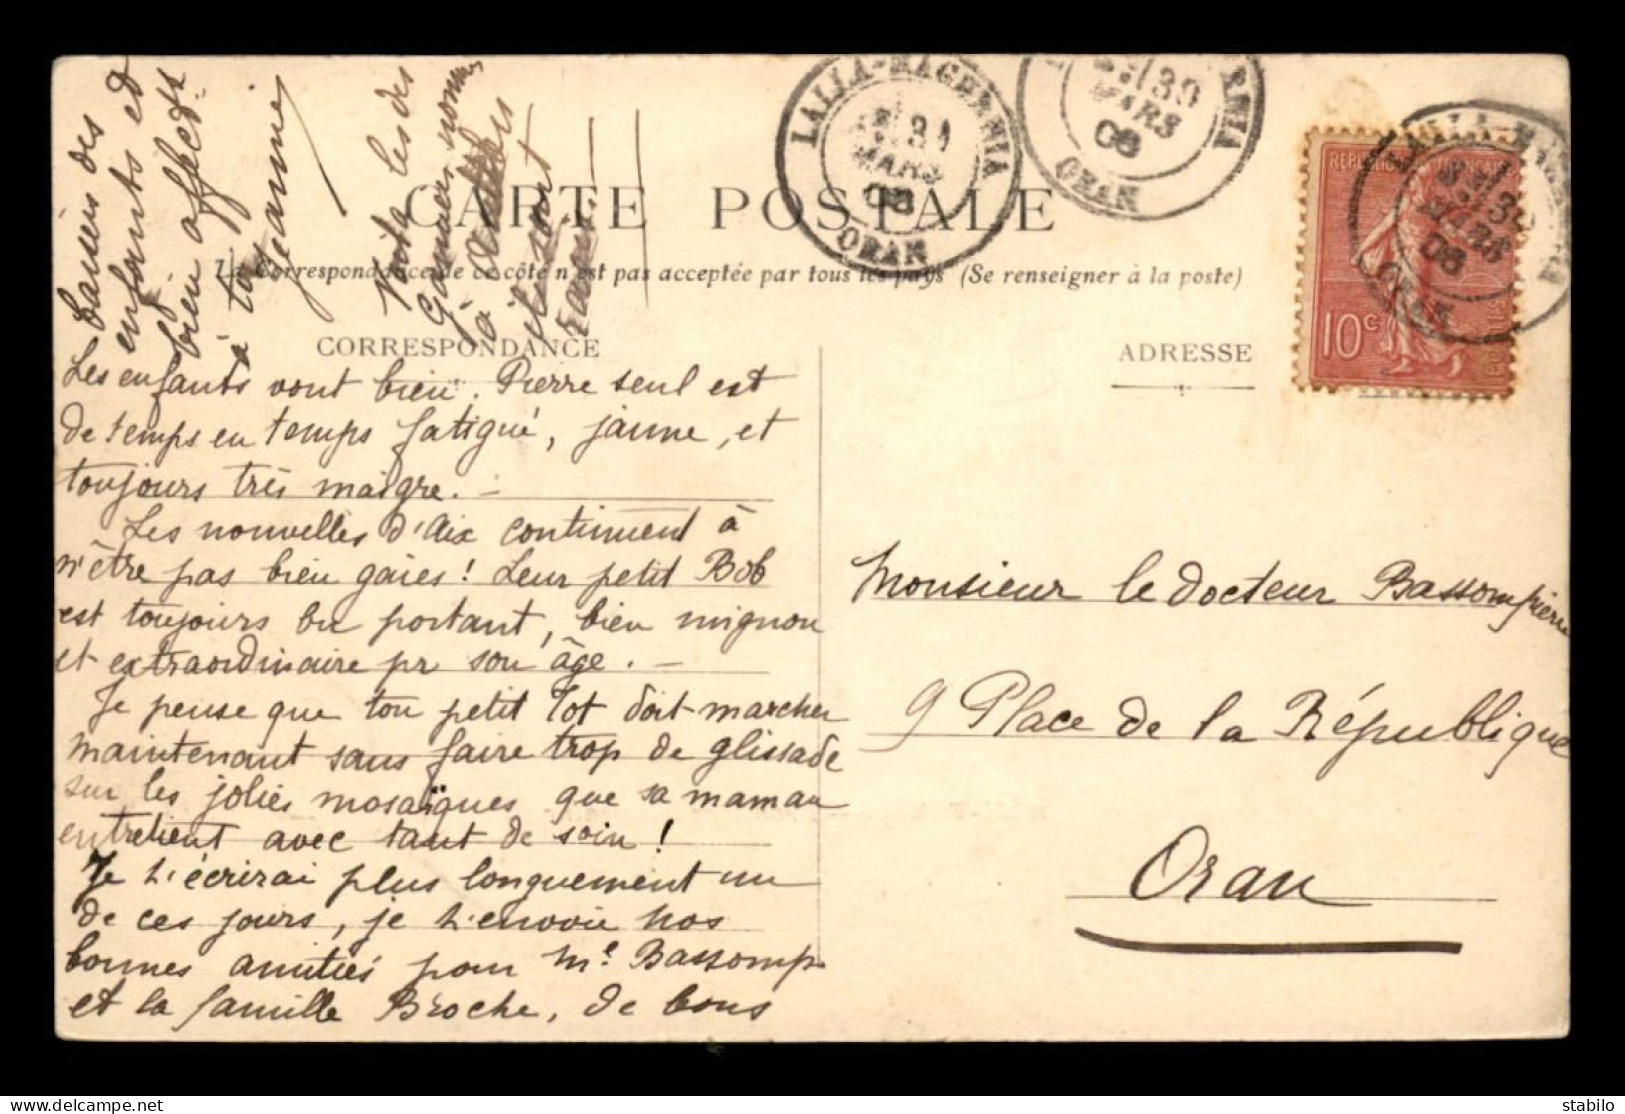 CARTE POSTALE
La Correspondance de ce côté n'est pas acceptée par tous les pays (Se renseigner à la poste)
CORRESPONDANCE
Les enfants vont bien. Pierre seul est
de temps en temps fatigué, jaune, et
toujours très maigre. —
Les nouvelles d'Aix continuent à
n'être pas bien gaies ! Leur petit Bob
est toujours bn portant, bien mignon
et extraordinaire pr son âge. —
Je pense que ton petit Tot doit marcher
maintenant sans faire trop de glissade
sur les jolies mosaïques que sa maman
entretient avec tant de soin !
Je t'écrirai plus longuement un
de ces jours, je t'envoie nos
bonnes amitiés pour Me Bassomp.
et la famille Broche, de bons
baisers des
enfants et
bien affectt
à toi
Jeanne
Voilà les des
à
ils sont
ADRESSE
Monsieur le docteur Bassompierre
9 Place de la République
Oran
LALLA-MAGHRNIA
31
MARS
08
ORAN
RNIA
30
MARS
08
ORAN
10c
LALLA-M
30
MARS
08
ORAN
stabilo
delcampe.net